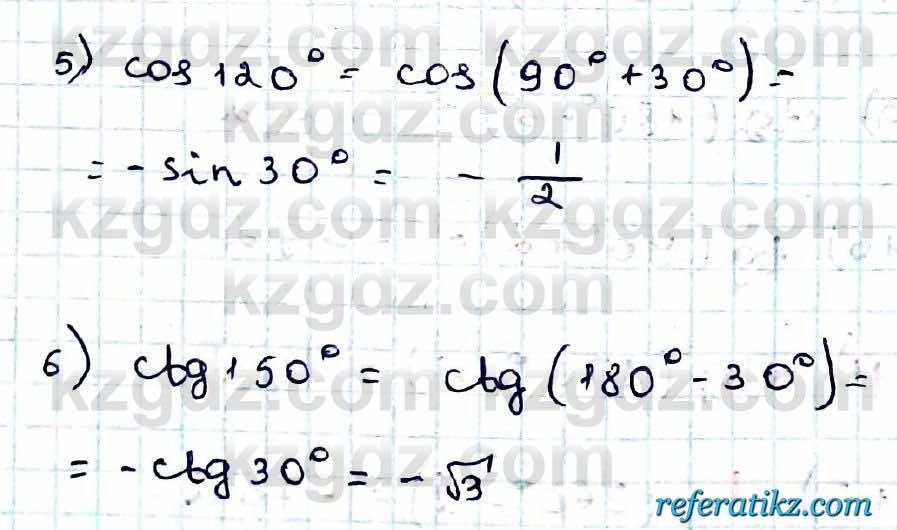 5) cos 120° = cos (90° + 30°) =
= - sin 30° = - 1/2
6) ctg 150° = ctg (180° - 30°) =
= - ctg 30° = - √3
kzgdz.com
kzgdz.com
kzgdz.com
kzgdz.com
kzgdz.com
kzgdz.com
referatikz.com